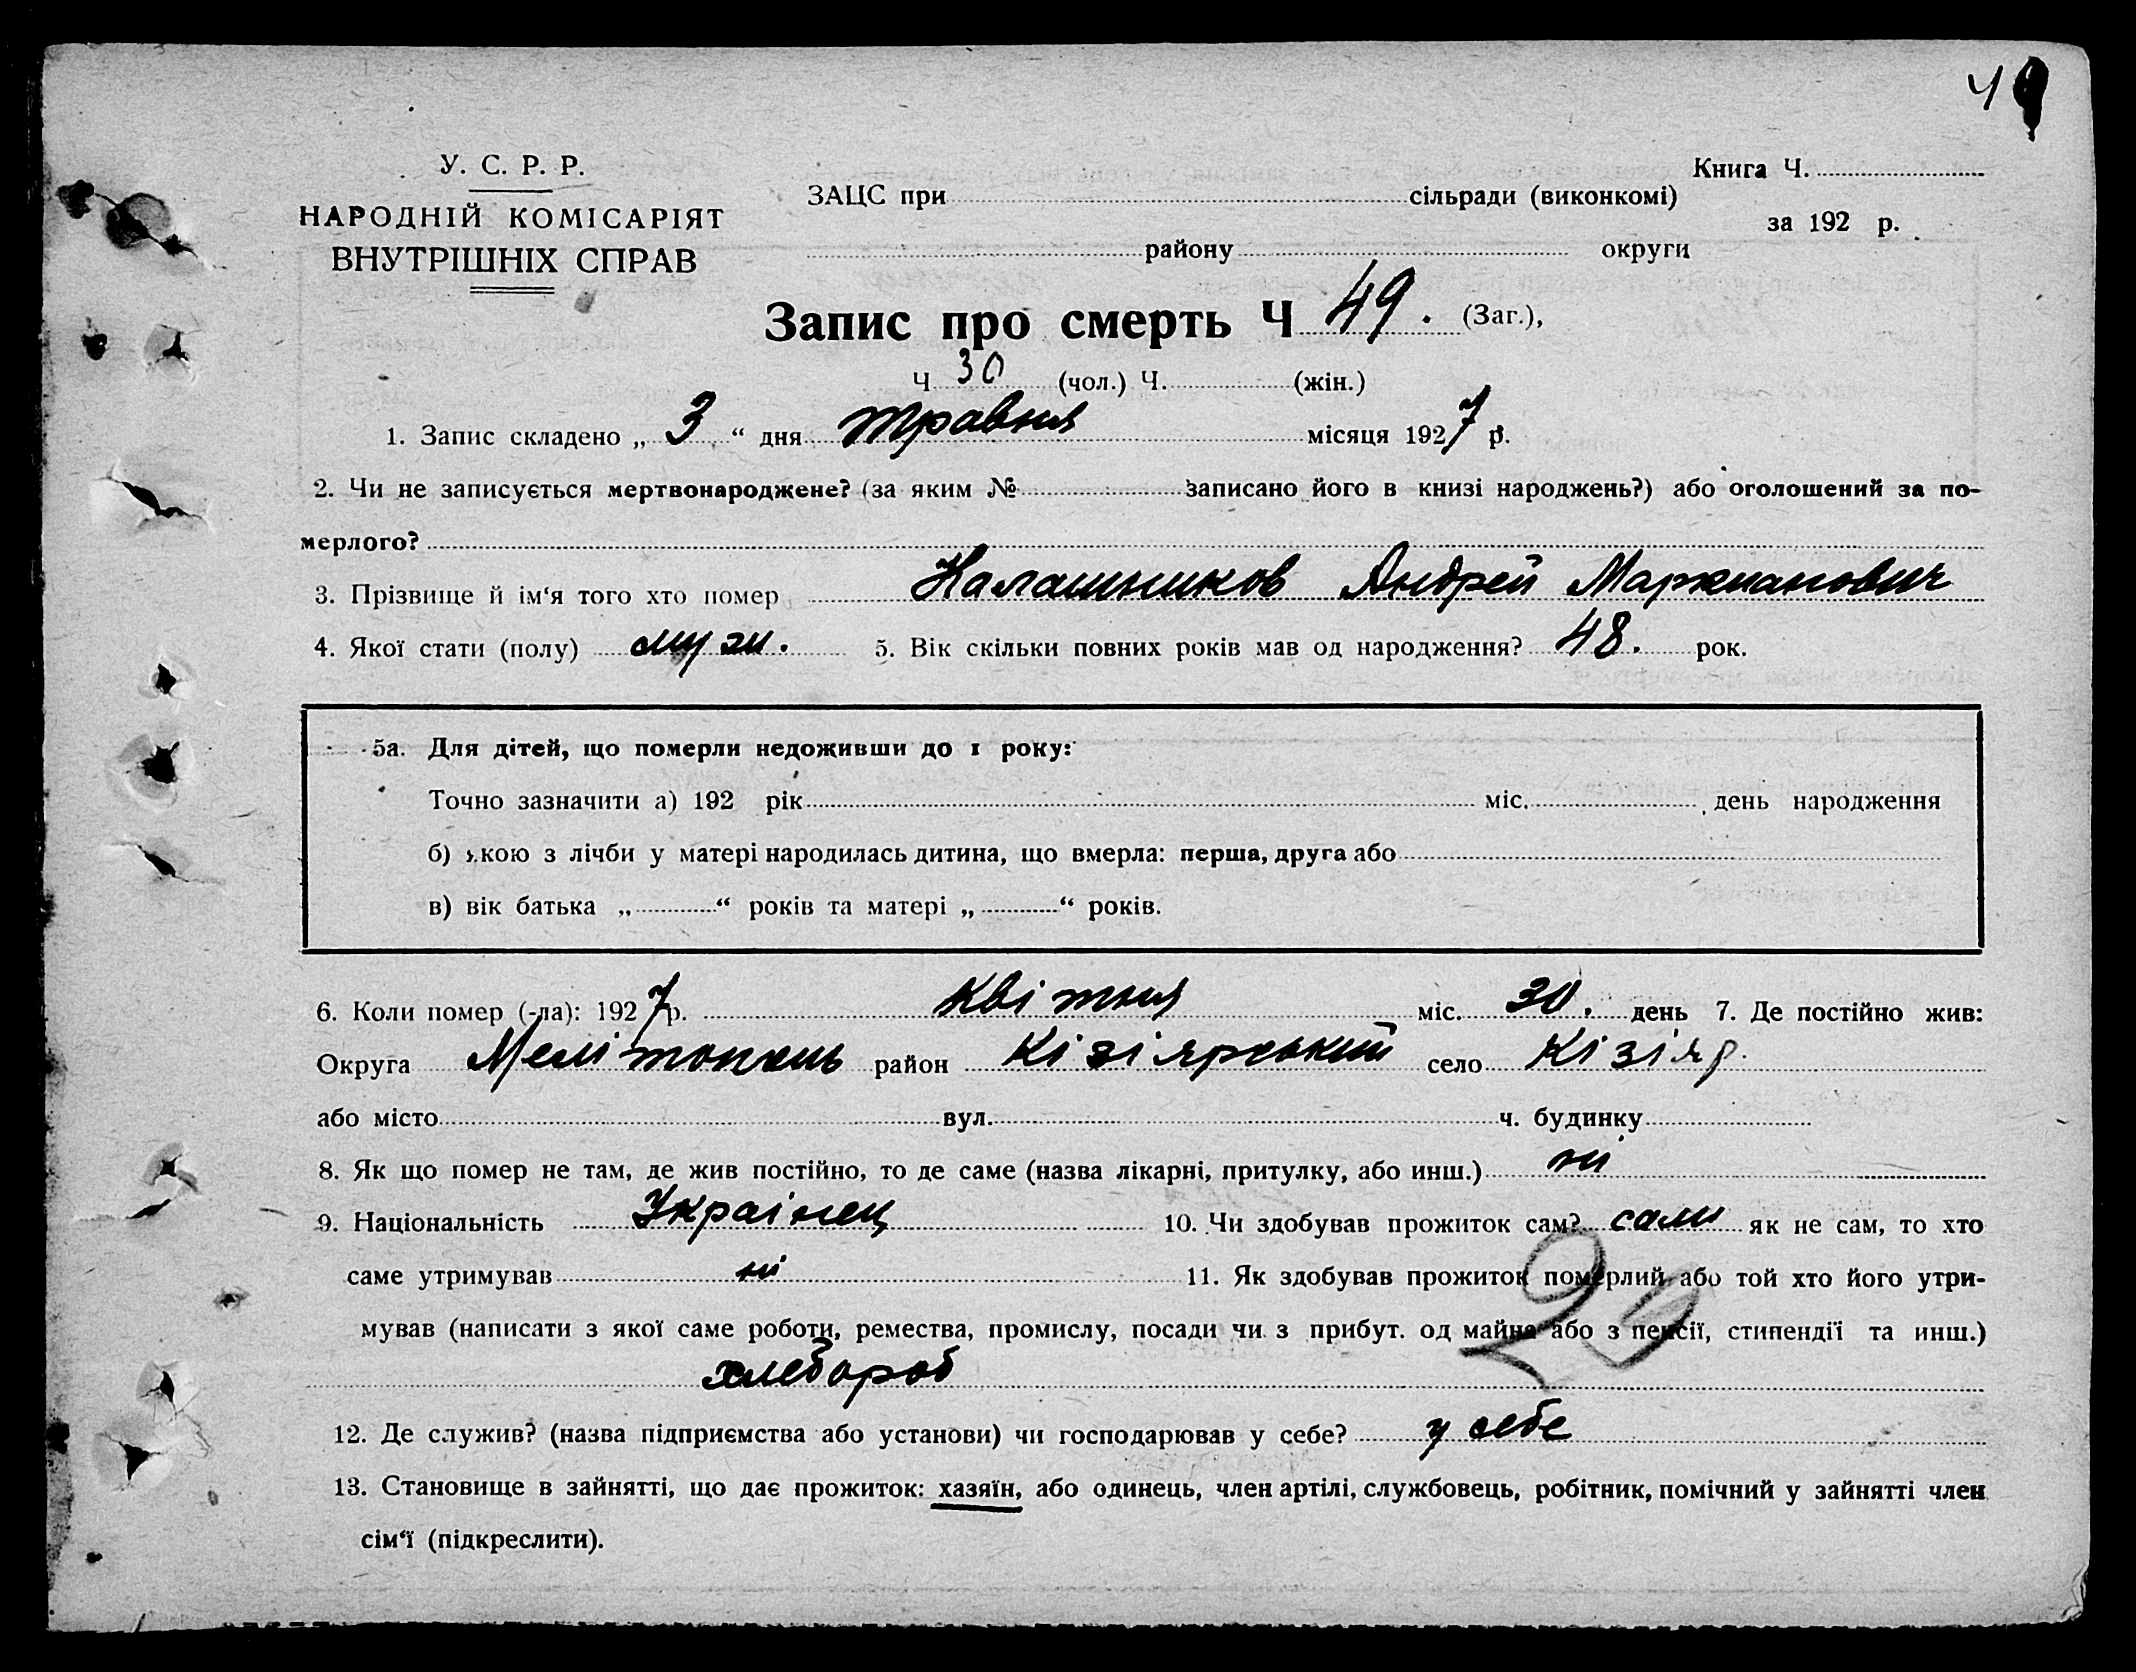 49
У. С. Р. Р.
НАРОДНІЙ КОМІСАРІЯТ
ВНУТРІШНІХ СПРАВ
Книга Ч.
ЗАЦС при сільради (виконкомі)
за 192 р.
району округи
Запис про смерть Ч 49. (Заг.),
Ч 30 (чол.) Ч. (жін.)
1. Запис складено „ 3 “ дня травня місяця 1927 р.
2. Чи не записується мертвонароджене? (за яким № записано його в книзі народжень?) або оголошений за по-
мерлого?
3. Прізвище й ім‘я того хто помер Калашников Андрей Маркианович
4. Якої стати (полу) муж. 5. Вік скільки повних років мав од народження? 48. рок.
5а. Для дітей, що померли недоживши до 1 року:
Точно зазначити а) 192 рік міс. день народження
б) якою з лічби у матері народилась дитина, що вмерла: перша, друга або
в) вік батька „ “ років та матері „ “ років.
6. Коли помер (-ла): 1927 р. Квітня міс. 30. день 7. Де постійно жив:
Округа Мелітопіль район Кізіярський село Кізіяр.
або місто вул. ч. будинку
8. Як що помер не там, де жив постійно, то де саме (назва лікарні, притулку, або инш.) ні
9. Національність Украінец 10. Чи здобував прожиток сам? сам як не сам, то хто
саме утримував ні 11. Як здобував прожиток померлий або той хто його утри-
мував (написати з якої саме роботи, ремества, промислу, посади чи з прибут. од майна або з пенсії, стипендії та инш.)
хлебороб
12. Де служив? (назва підприємства або установи) чи господарював у себе? у себе
13. Становище в зайнятті, що дає прожиток: хазяїн, або одинець, член артілі, службовець, робітник, помічний у зайнятті член
сім‘ї (підкреслити).